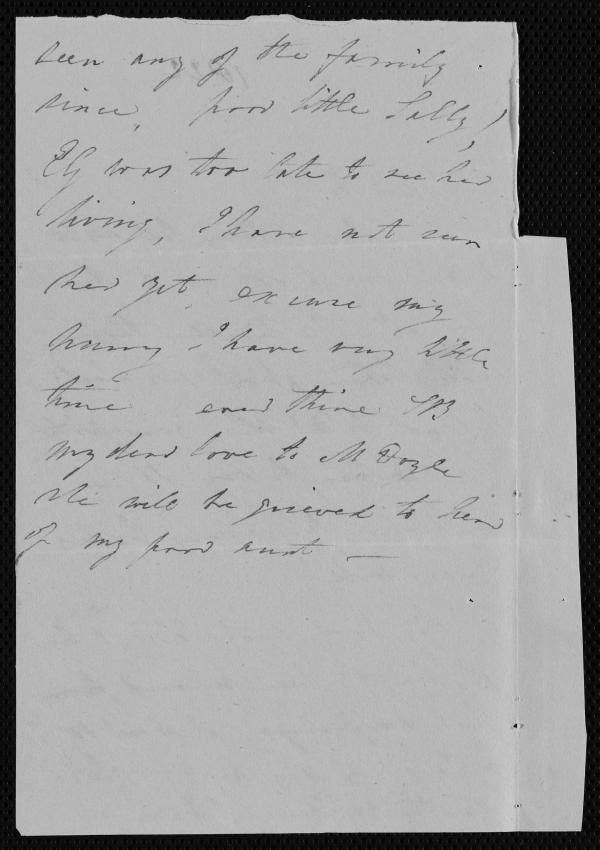 seen any of the family
since, poor little Sally!
EG was too late to see her
living, I have not seen
her yet, excuse my
hurry I have very little
time ever thine SB
my dear love to M Doyle
she will be grieved to hear
of my poor aunt —